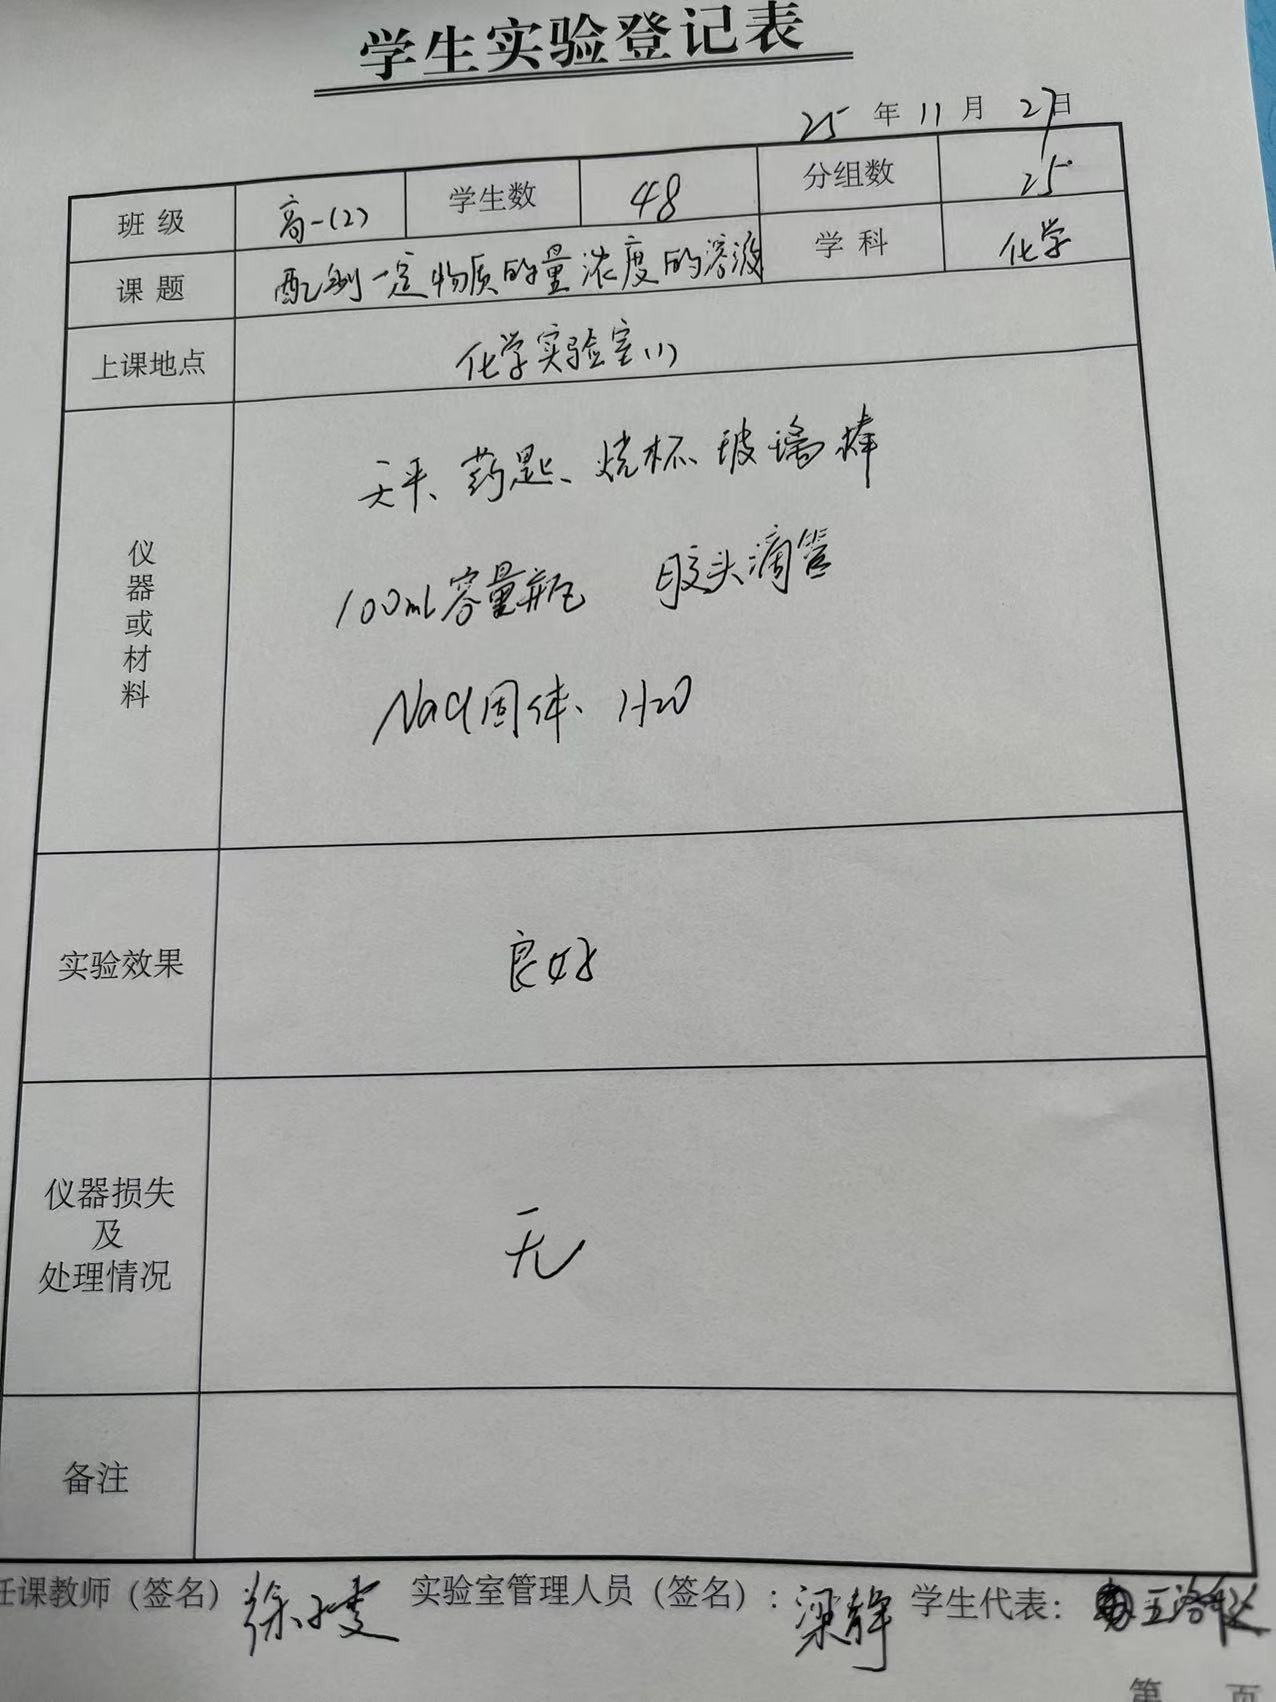 学生实验登记表
25 年 11 月 27 日
班 级 高一(2) 学生数 48 分组数 25
课 题 配制一定物质的量浓度的溶液 学 科 化学
上课地点 化学实验室(1)
仪器或材料
天平、药匙、烧杯、玻璃棒
100mL容量瓶 胶头滴管
NaCl固体、H2O
实验效果 良好
仪器损失
及
处理情况
无
备注
任课教师（签名） 徐 实验室管理人员（签名）: 梁静 学生代表: 王
第 页